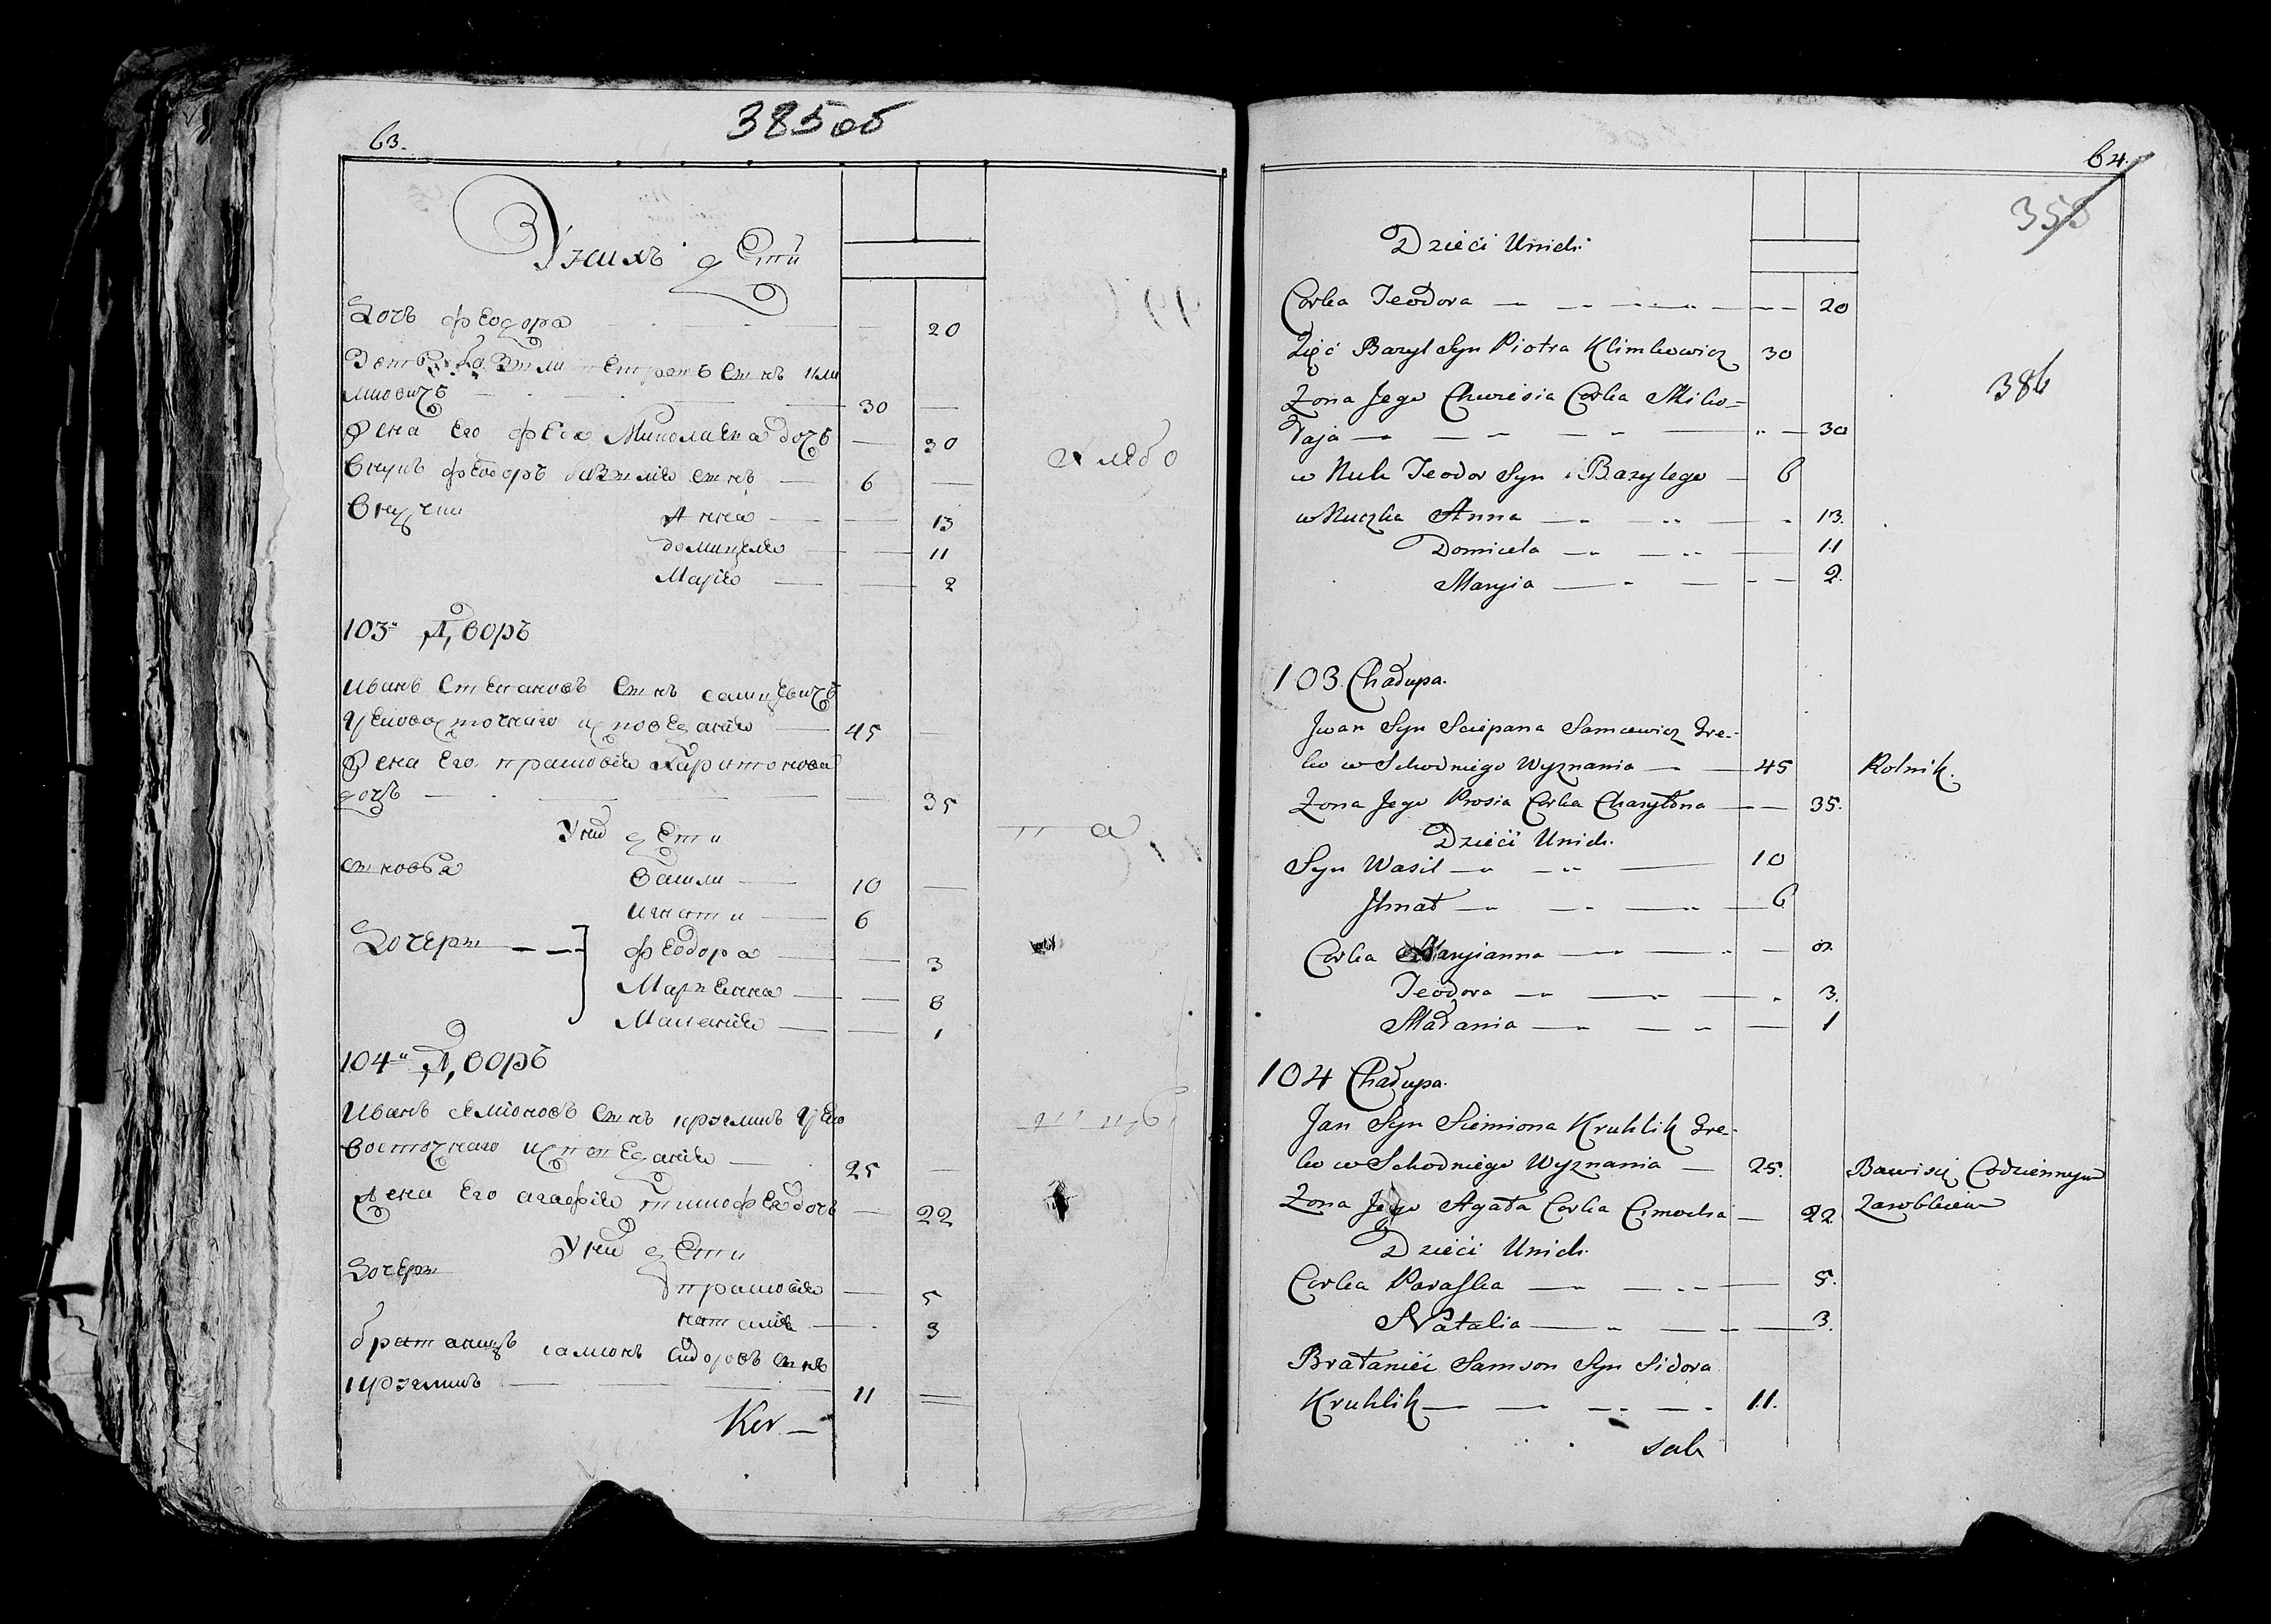 63.
385об
У нихъ дѣти
Дочь Феодора 20
Зять Базыли Петровъ сынъ Кли
мовичъ 30
Жена его Феся Миколаева дочь 30
Внукъ Феодоръ Базылїя сынъ 6
Внучки Анна 13
Домицеля 11
Марїя 2
103й Дворъ
Иванъ Степановъ сынъ Самцевичъ
Грековосточнаго исповеданїя 45
Жена его Прасковїя Харитонова
дочь 35
У них дѣти
сыновья Васили 10
Игнати 6
Дочеры Феодора 3
Марьянна 8
Маланїя 1
104й Дворъ
Иванъ Семїоновъ сынъ Круглик Греко
восточнаго исповеданїя 25
Жена его Агафїя Тимофея дочь 22
У них дѣти
Дочеры Прасковїя 5
Наталїя 3
братаницъ Самсонъ Сидоровъ сынъ
Кругликъ 11
Ker.
64.
353
386
Dzieci Unich.
Corka Teodora 20
Zięć Bazyl Syn Piotra Klimkowicz 30
Zona Jego Chwiesia Corka Miko=
łaja 30
w Nuk Teodor Syn Bazylego 6
w Nuczka Anna 13.
Domicela 11
Maryia 2.
103. Chałupa.
Jwan Syn Sciepana Samcewicz Gre=
ko w Schodniego Wyznania 45 Rolnik.
Zona Jego Prosia Corka Charytona 35.
Dzieci Unich.
Syn Wasil 10
Jhnat 6
Corka Maryianna 8.
Teodora 3.
Małania 1
104 Chałupa.
Jan Syn Siemiona Kruhlik Gre=
ko w Schodniego Wyznania 25. Bawi się Codziennym
Zona Jego Agata Corka Cimocha 22 Zarobkiem
Dzieci Unich.
Corka Paraska 5.
Natalia 3.
Brataniec Samson Syn Sidora
Kruhlik 11.